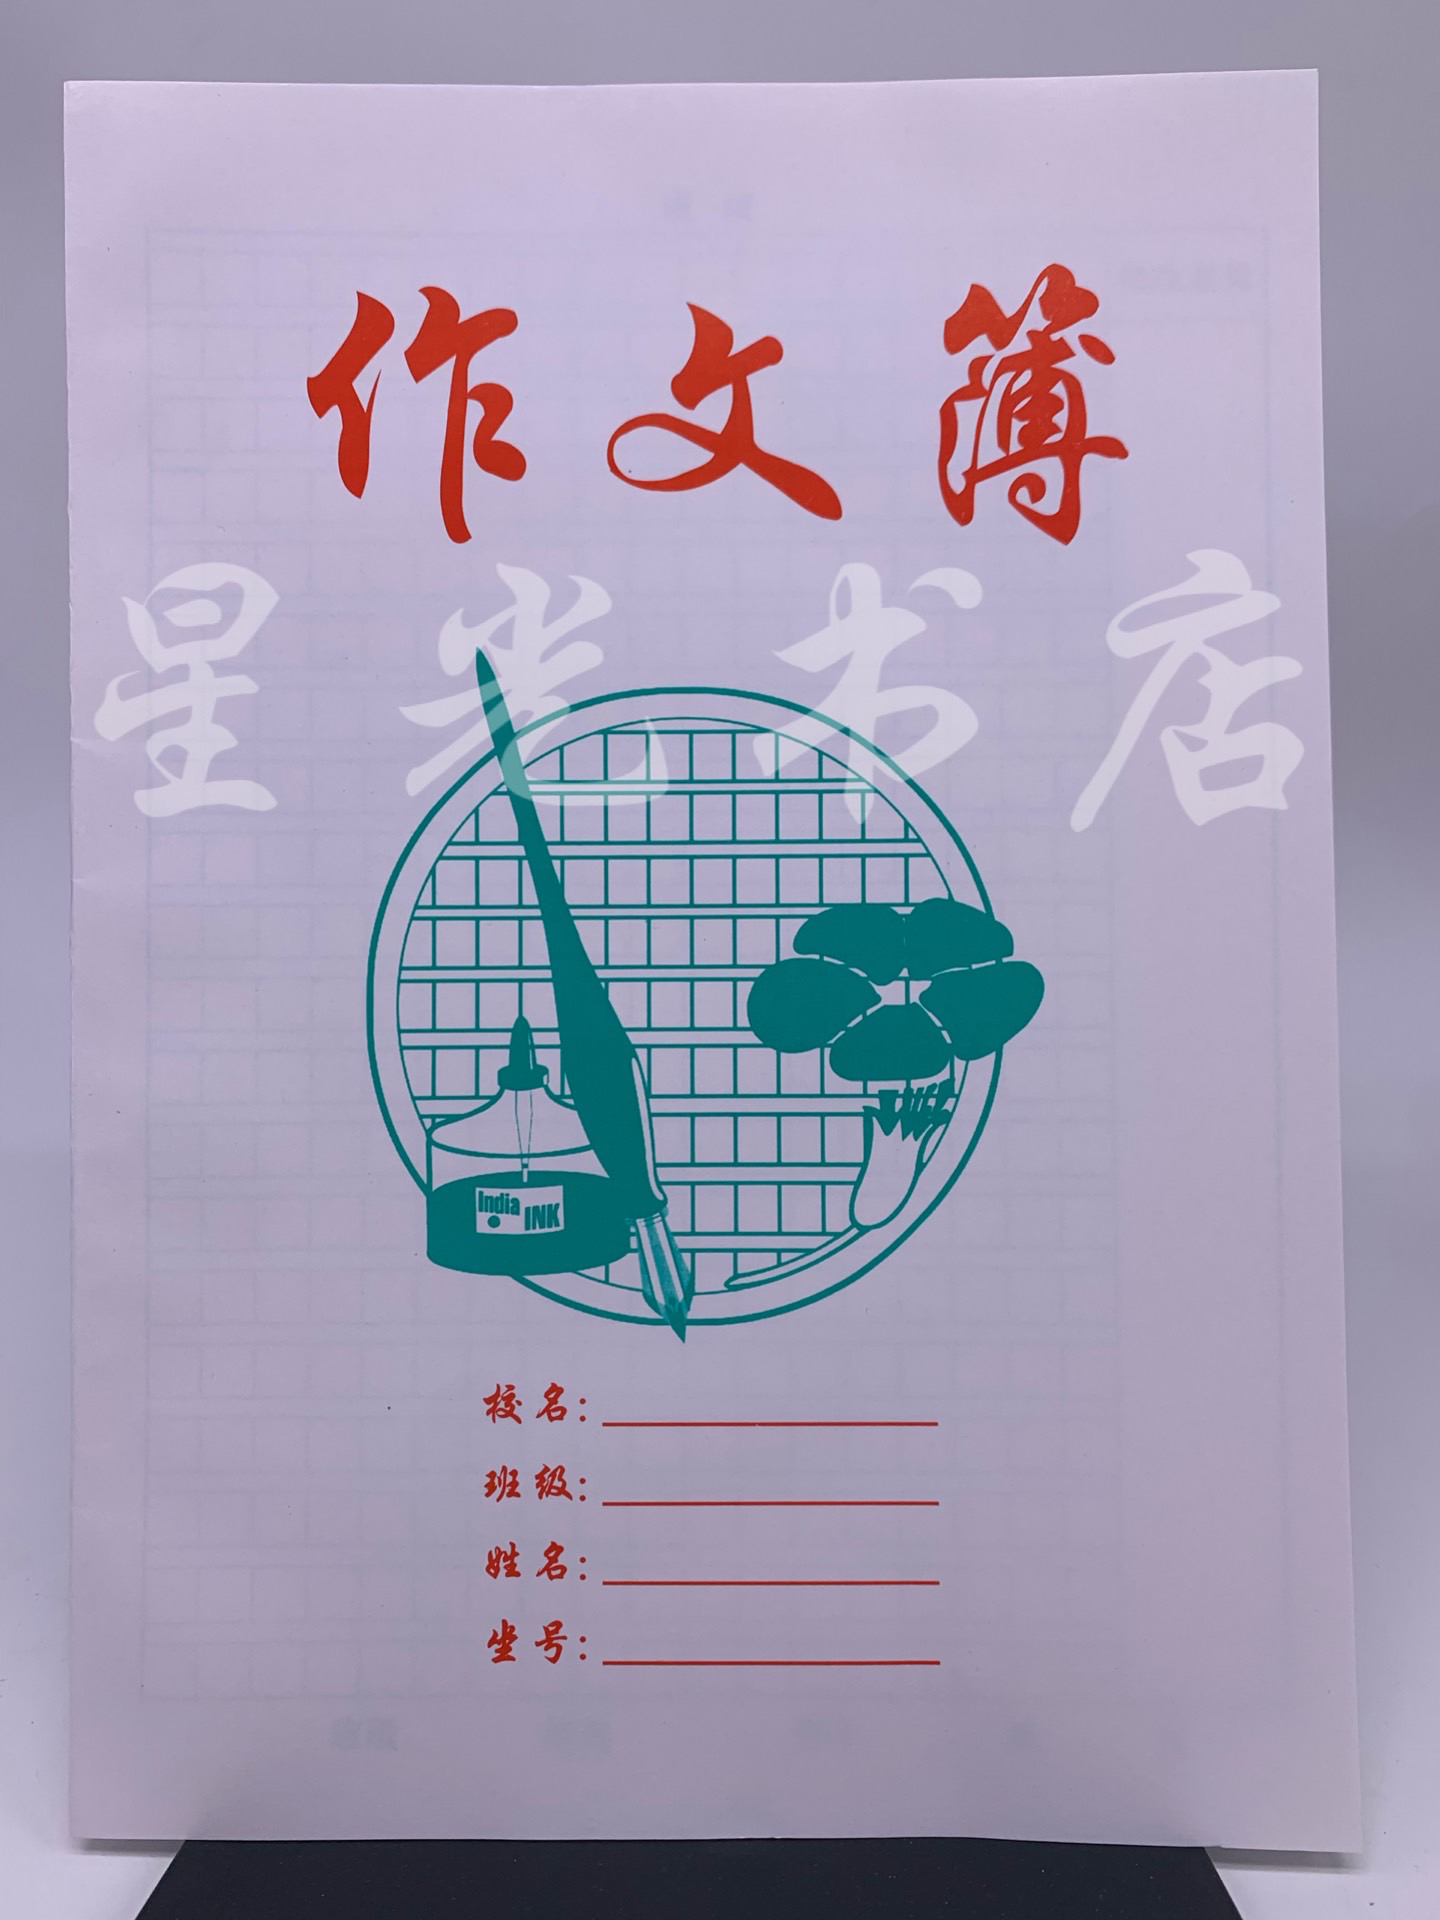 作文簿
星光书店
India
INK
校名：
班级：
姓名：
坐号：